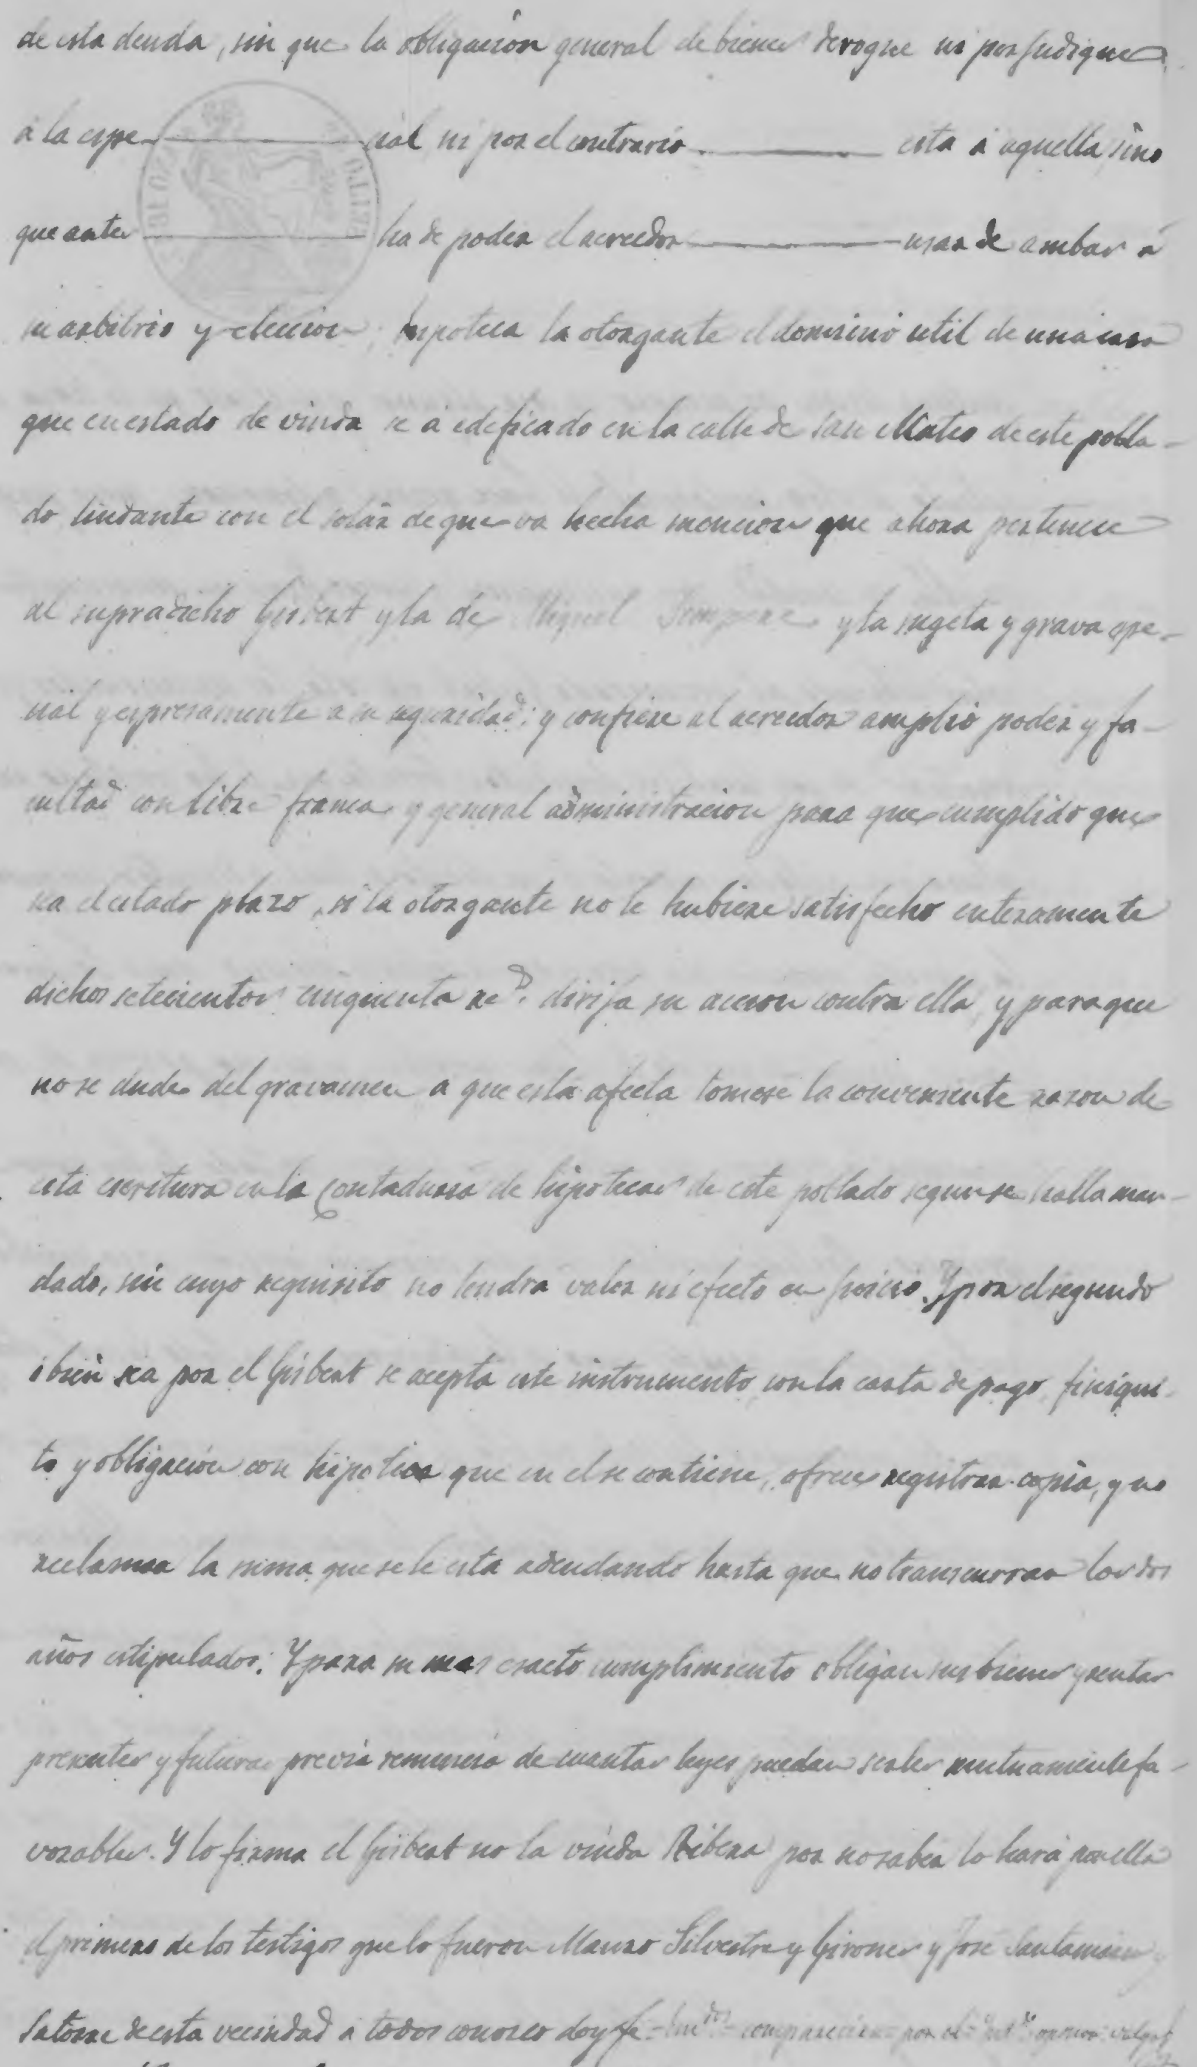 de esta deuda, sin que la obligación general de bienes derogue ni perjudique
á la espe———cial ni por el contrario ——— esta á aquella, sino
que antes ——— ha de poder el acreedor ——— usar de ambas á
su arbitrio y eleccion, hipoteca la otorgante el dominio util de una casa
que en estado de viuda se á edificado en la calle de San Mateo de este pobla-
do lindante con el solar de que va hecha mencion que ahora pertenece
al supradicho Gisbert y la de Miguel Sempere y la sugeta y grava espe-
cial y espresamente a su seguridad: y confiere al acreedor amplio poder y fa-
cultad con libre franca y general administracion para que cumplido que
sea el citado plazo, si la otorgante no le hubiere satisfecho enteramente
dichos setecientos cinquenta rs. dirija su accion contra ella, y para que
no se dude del gravamen a que está afecta tomese la conveniente razon de
esta escritura en la Contaduria de hipotecas de este poblado segun se halla man-
dado, sin cuyo requisito no tendrá valor ni efecto en juicio. Y por el segundo
ó bien sea por el Gisbert se acepta este instrumento con la carta de pago, finiqui-
to y obligación con hipoteca que en el se contiene, ofrece registrar copia, y no
reclamar la suma que se le está adeudando hasta que no transcurran los dos
años estipulados. Y para su mas exacto cumplimiento obligan sus bienes y rentas
presentes y futuras previa renuncia de cuantas leyes puedan serles mutuamente fa-
vorables. Y lo firma el Gisbert no la viuda Ribera por no saber lo hará por ella
el primero de los testigos que lo fueron Mauro Silvestre y Girones y José Santamaria y
Satorre de esta vecindad á todos conosco doy fe